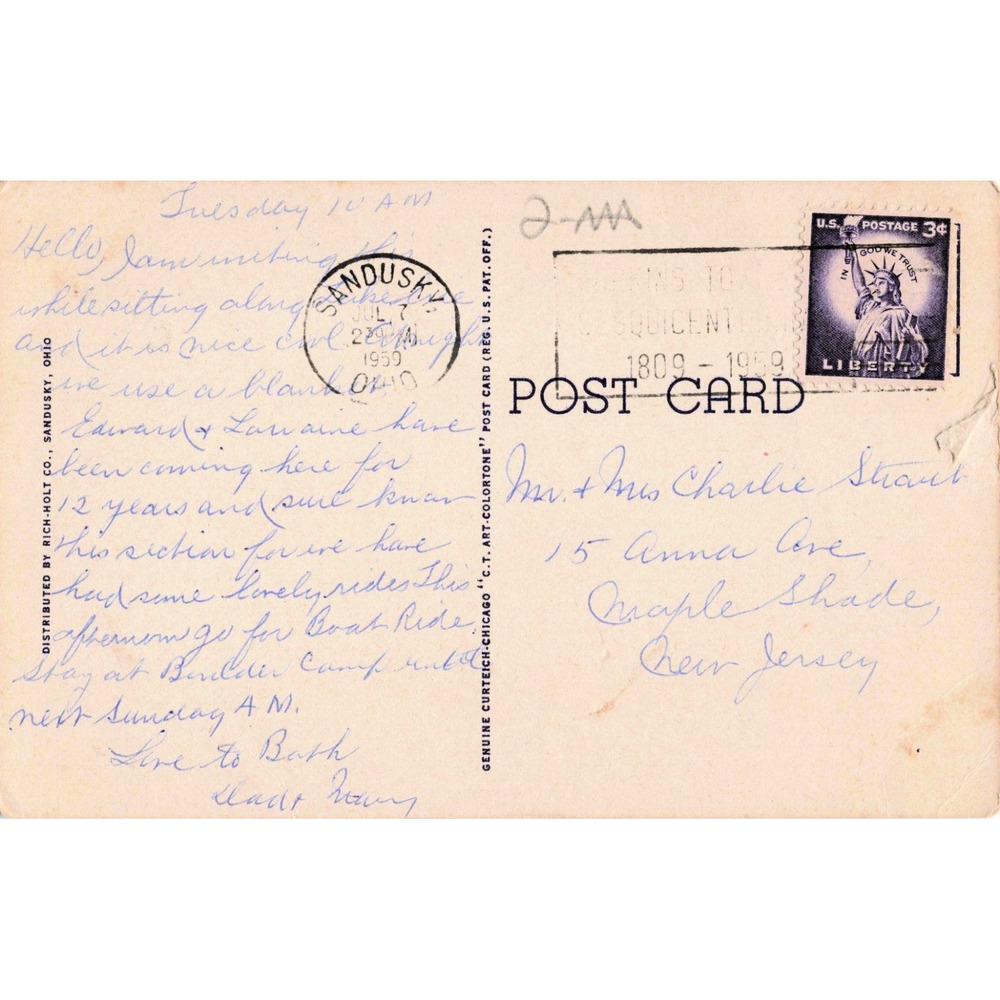 Tuesday 10 AM
Hello, I am writing this
while sitting along Lake Erie
and it is nice cool tonight
we use a blanket.
Edward & Lorraine have
been coming here for
12 years and sure know
this section for we have
had some lovely rides This
afternoon go for Boat Ride.
Stay at Camp until
next Sunday A M.
Love to Both
Dad & Mary
DISTRIBUTED BY RICH-HOLT CO., SANDUSKY, OHIO
GENUINE CURTEICH-CHICAGO "C.T. ART-COLORTONE" POST CARD (REG. U.S. PAT. OFF.)
SANDUSKY,
JUL 7
1959
OHIO
2-
SQUICENT
1809 - 1959
U.S. POSTAGE 3¢
IN GOD WE TRUST
LIBERTY
POST CARD
Mr. & Mrs Charlie Straub
15 Anna Ave,
Maple Shade,
New Jersey